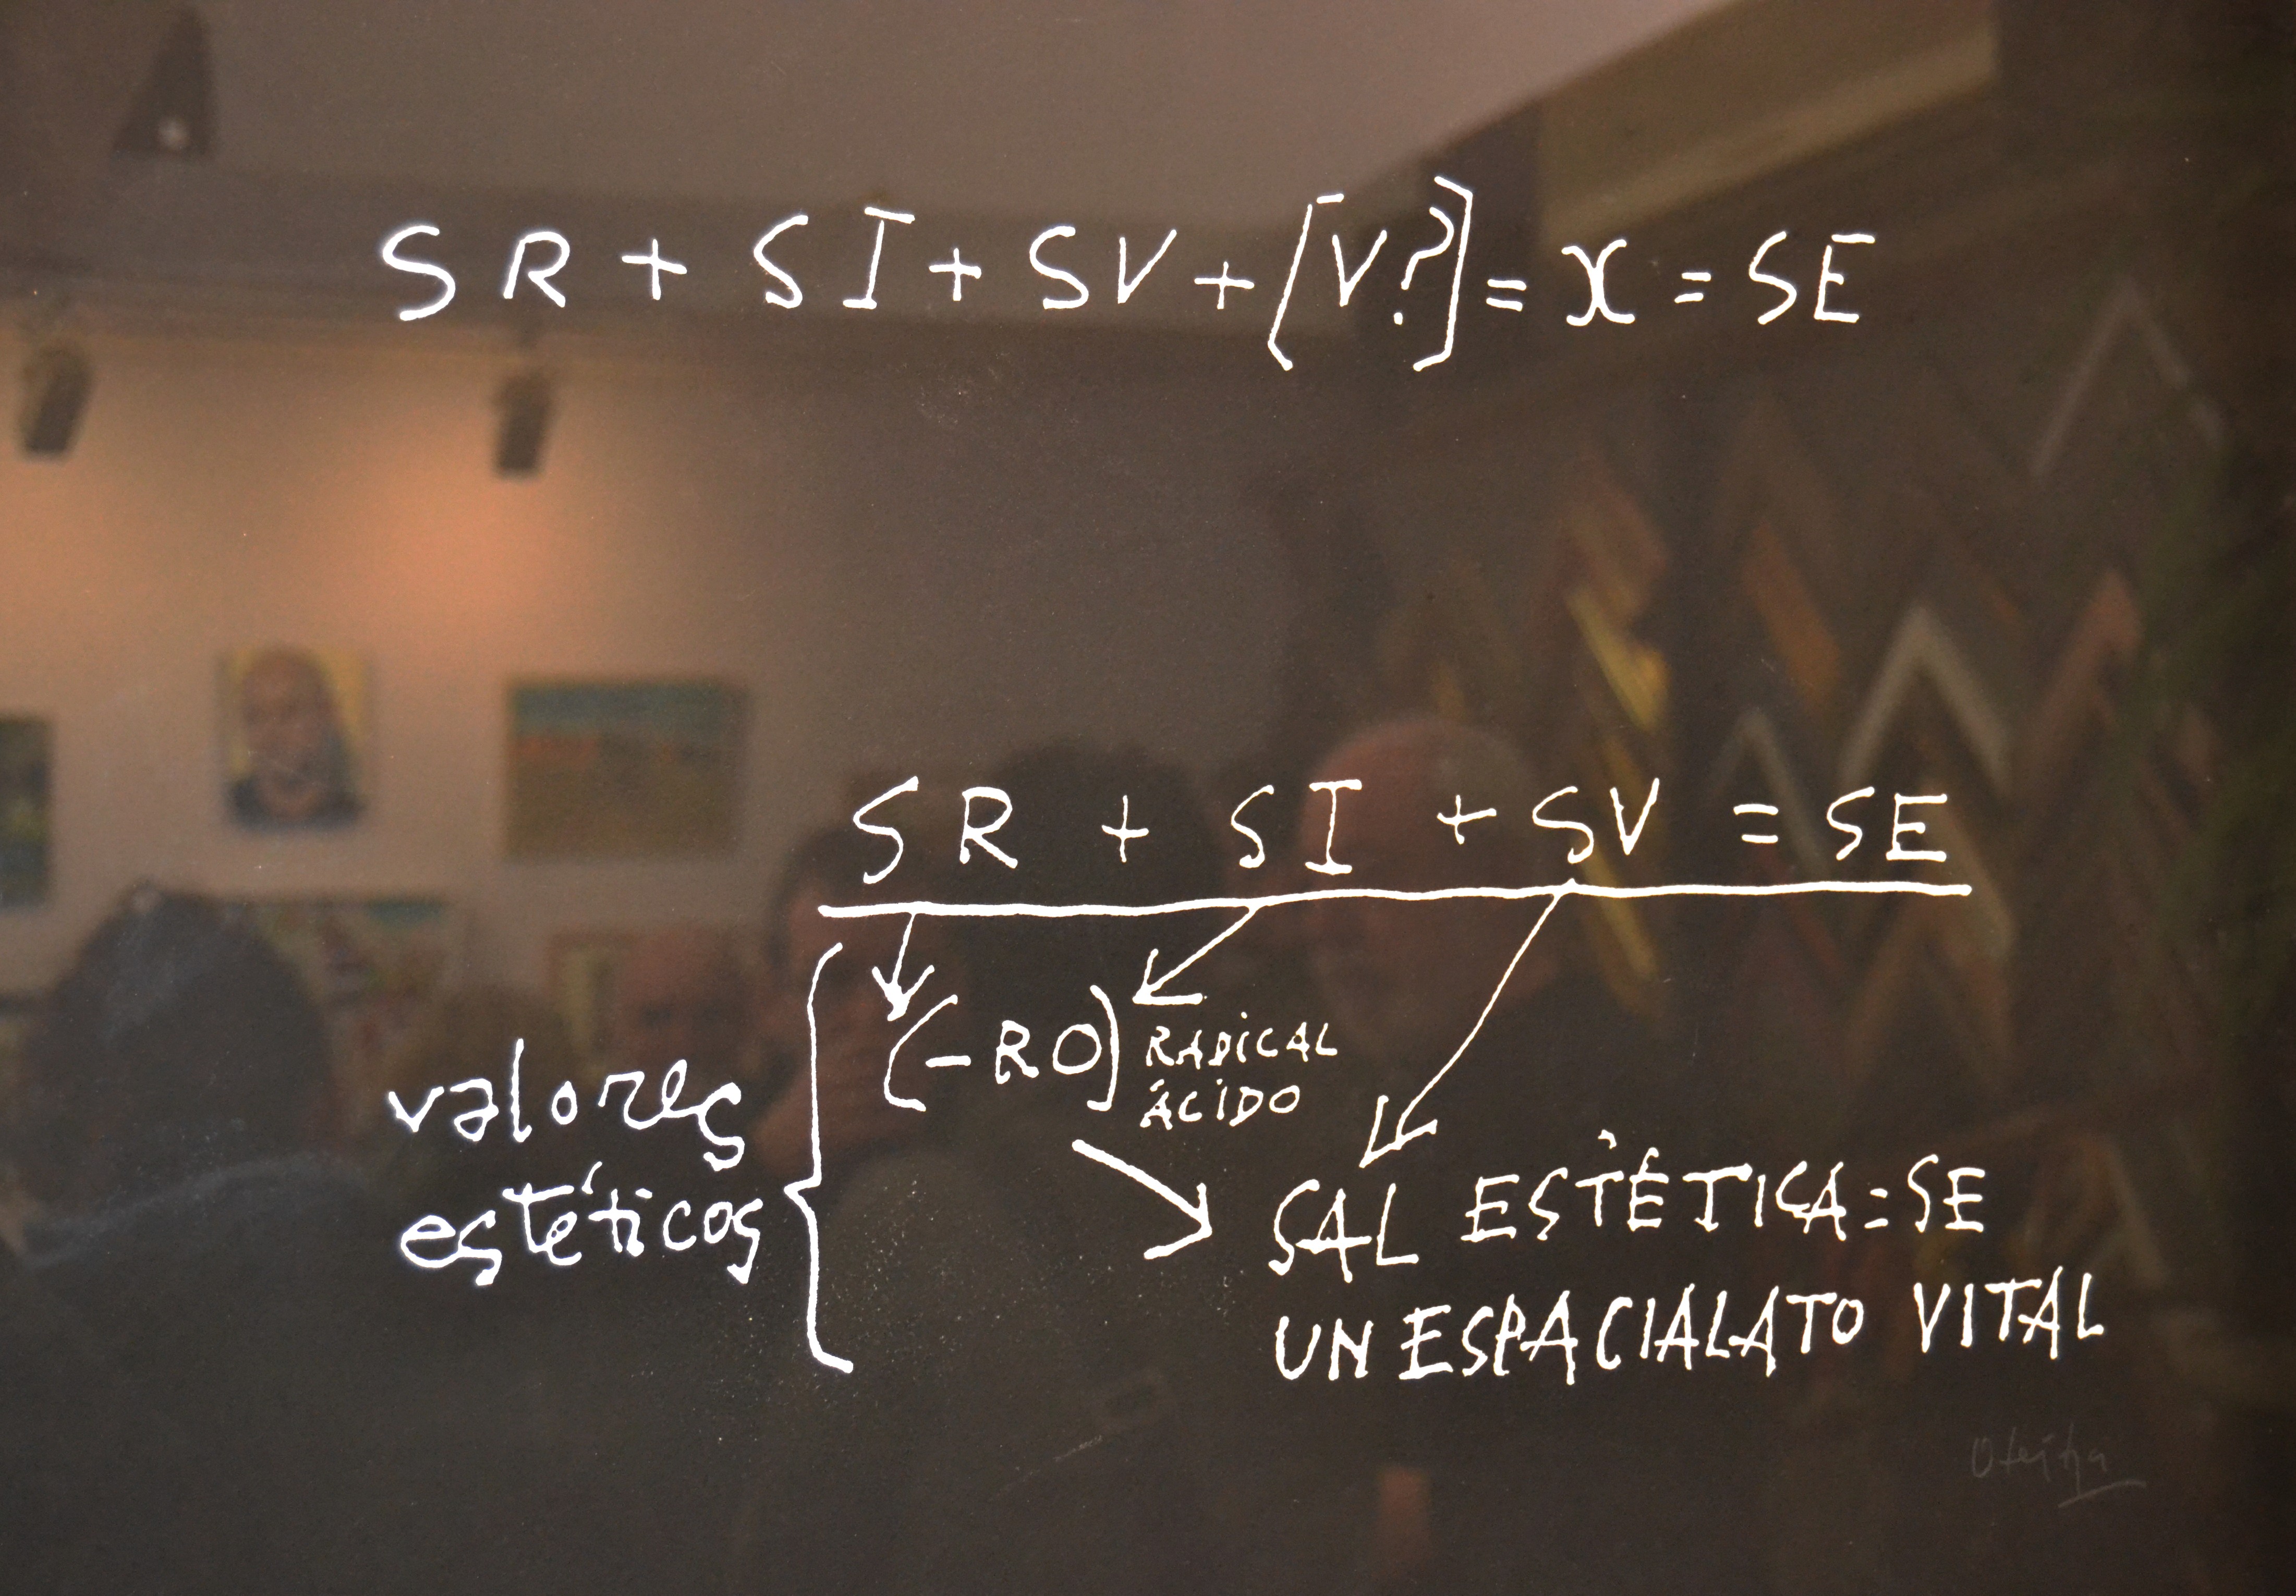 SR + SI + SV + [V?] = x = SE
SR + SI + SV = SE
valores
estéticos
(-RO)
RADICAL
ÁCIDO
SAL ESTÉTICA = SE
UN ESPACIALATO VITAL
Oteiza